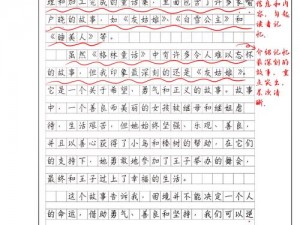 理和加工完成的童话集，里面包含了许多家喻
户晓的故事，如《灰姑娘》、《白雪公主》和
《睡美人》等。
虽然《格林童话》中有许多令人难以忘怀
的故事，但我印象最深刻的还是《灰姑娘》。
它是一个关于希望、勇气和正义的故事，故事
中，一个善良而美丽的女孩被继母和继姐虐
待，生活悲惨，但她始终坚强、乐观、善良，
并且以善心获得了小鸟和榛树的帮助，在它们
的支持下，她勇敢地参加了王子举办的舞会，
最终和王子过上了幸福的生活。
这个故事告诉我，困境并不能决定一个人
的命运，借助勇气、善良和坚持，我们可以逆
信息和内
容，勾起
读者记
忆。
介绍记忆
最深刻的
故事，重
点突出，
层次清
晰。